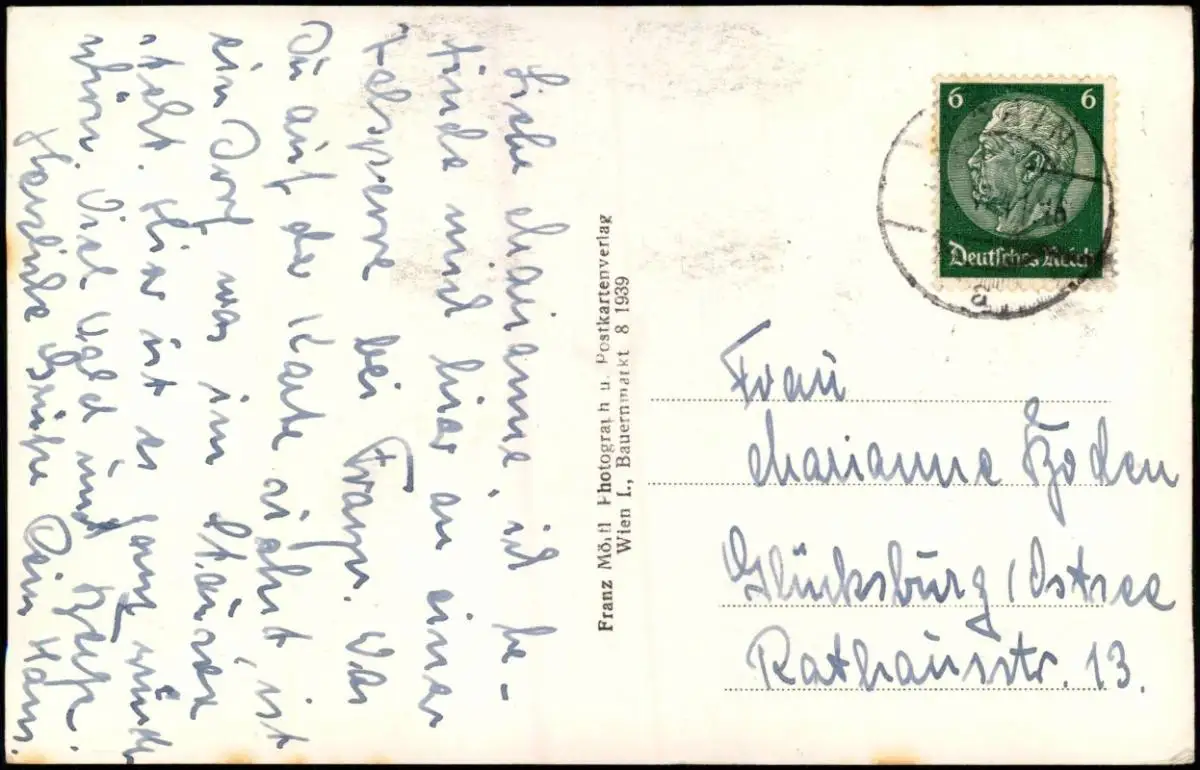 Liebe Marianne, ich be-
finde mich hier an einer
Talsperre bei Frain. Was
Du auf der Karte siehst, ist
ein Dorf was im Stausee
steht. Hier ist es ganz wunder
schön. Viel Wald und
Herzliche Grüße Dein Hans.
Franz Mörtl Photograph u. Postkartenverlag
Wien I., Bauernmarkt 8 1939
6 6
Deutsches Reich
a
Frau
Marianne
Glücksburg/Ostsee
Rathausstr. 13.